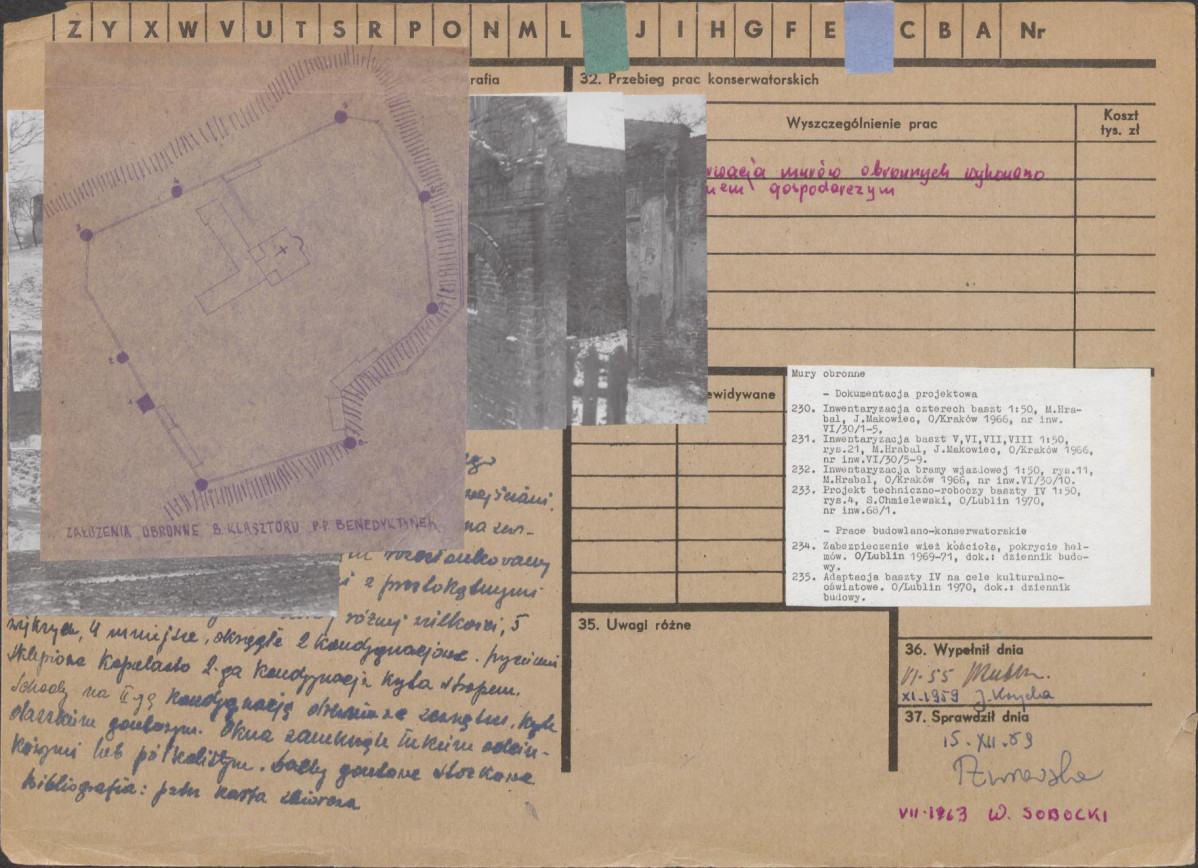 Z Y X W V U T S R P O N M L J I H G F E C B A Nr
rafia
32. Przebieg prac konserwatorskich
Wyszczególnienie prac
Koszt
tys. zł
murów obronnych wykonano
gospodarczym
ewidywane
Mury obronne
- Dokumentacja projektowa
230. Inwentaryzacja czterech baszt 1:50, M.Hra-
bal, J.Makowiec, O/Kraków 1966, nr inw.
VI/30/1-5.
231. Inwentaryzacja baszt V,VI,VII,VIII 1:50,
rys.21, M.Hrabal, J.Makowiec, O/Kraków 1966,
nr inw.VI/30/5-9.
232. Inwentaryzacja bramy wjazdowej 1:50, rys.11,
M.Hrabal, O/Kraków 1966, nr inw.VI/30/10.
233. Projekt techniczno-roboczy baszty IV 1:50,
rys.4, S.Chmielewski, O/Lublin 1970,
nr inw.68/1.
- Prace budowlano-konserwatorskie
234. Zabezpieczenie wież kościoła, pokrycie heł-
mów. O/Lublin 1969-71, dok.: dziennik budo-
wy.
235. Adaptacja baszty IV na cele kulturalno-
oświatowe. O/Lublin 1970, dok.: dziennik
budowy.
ZAŁOŻENIA OBRONNE B. KLASZTORU P.P. BENEDYKTYNEK
i z prostokątnymi
różnej wielkości, 5
4 mniejsze, okrągłe 2 kondygnacjowe.
sklepione kopulasto 2-ga kondygnacja kryta stropem.
Schody na II-gą kondygnację drewniane zewnątrz. kryte
daszkiem gontowym. Okna zamknięte łukiem odcin-
kowym lub półkolistym. 
Bibliografia: patrz karta zbiorcza
35. Uwagi różne
36. Wypełnił dnia
VI.55
XI.1959 J. Krzycha
37. Sprawdził dnia
15.XII.59
VII.1963 W. SOBOCKI